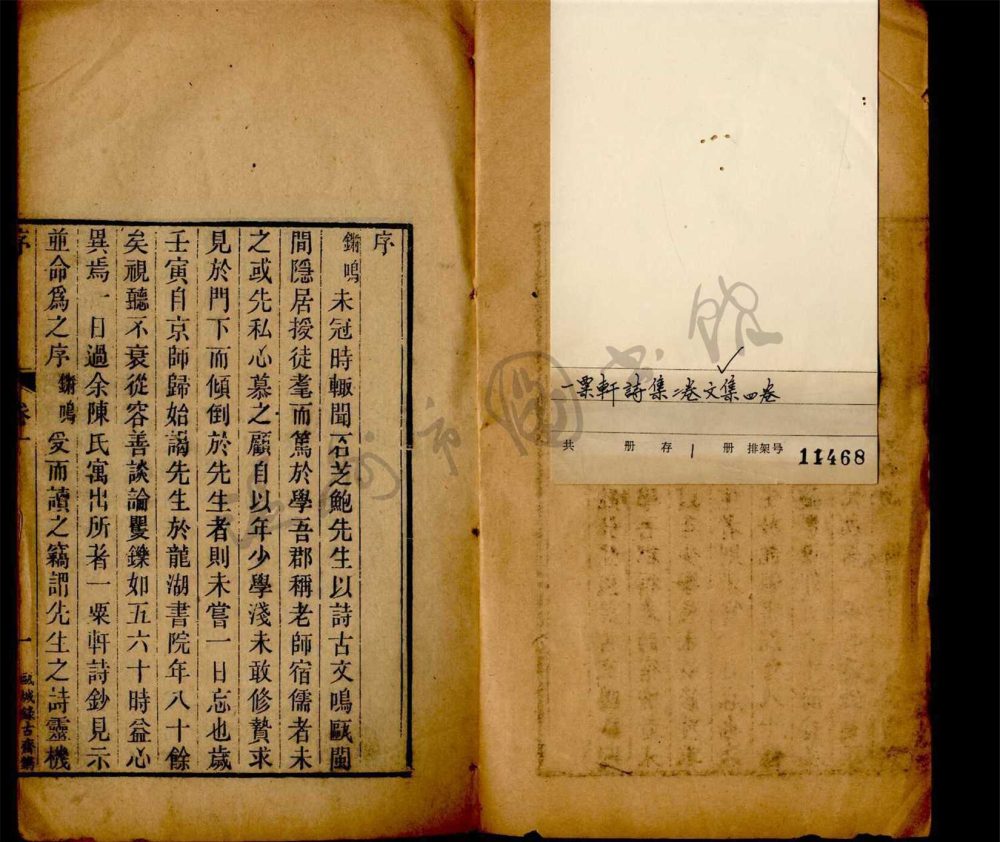 一粟軒詩集二卷文集四卷
共 册 存 1 册 排架号 11468
序
鏘鳴未冠時輙聞石芝鮑先生以詩古文鳴甌閩
間隱居授徒耄而篤於學吾郡稱老師宿儒者未
之或先私心慕之顧自以年少學淺未敢修贄求
見於門下而傾倒於先生者則未嘗一日忘也歲
壬寅自京師歸始謁先生於龍湖書院年八十餘
矣視聽不衰從容善談論矍鑠如五六十時益心
異焉一日過余陳氏寓出所著一粟軒詩鈔見示
並命爲之序鏘鳴受而讀之竊謂先生之詩靈機
序
一